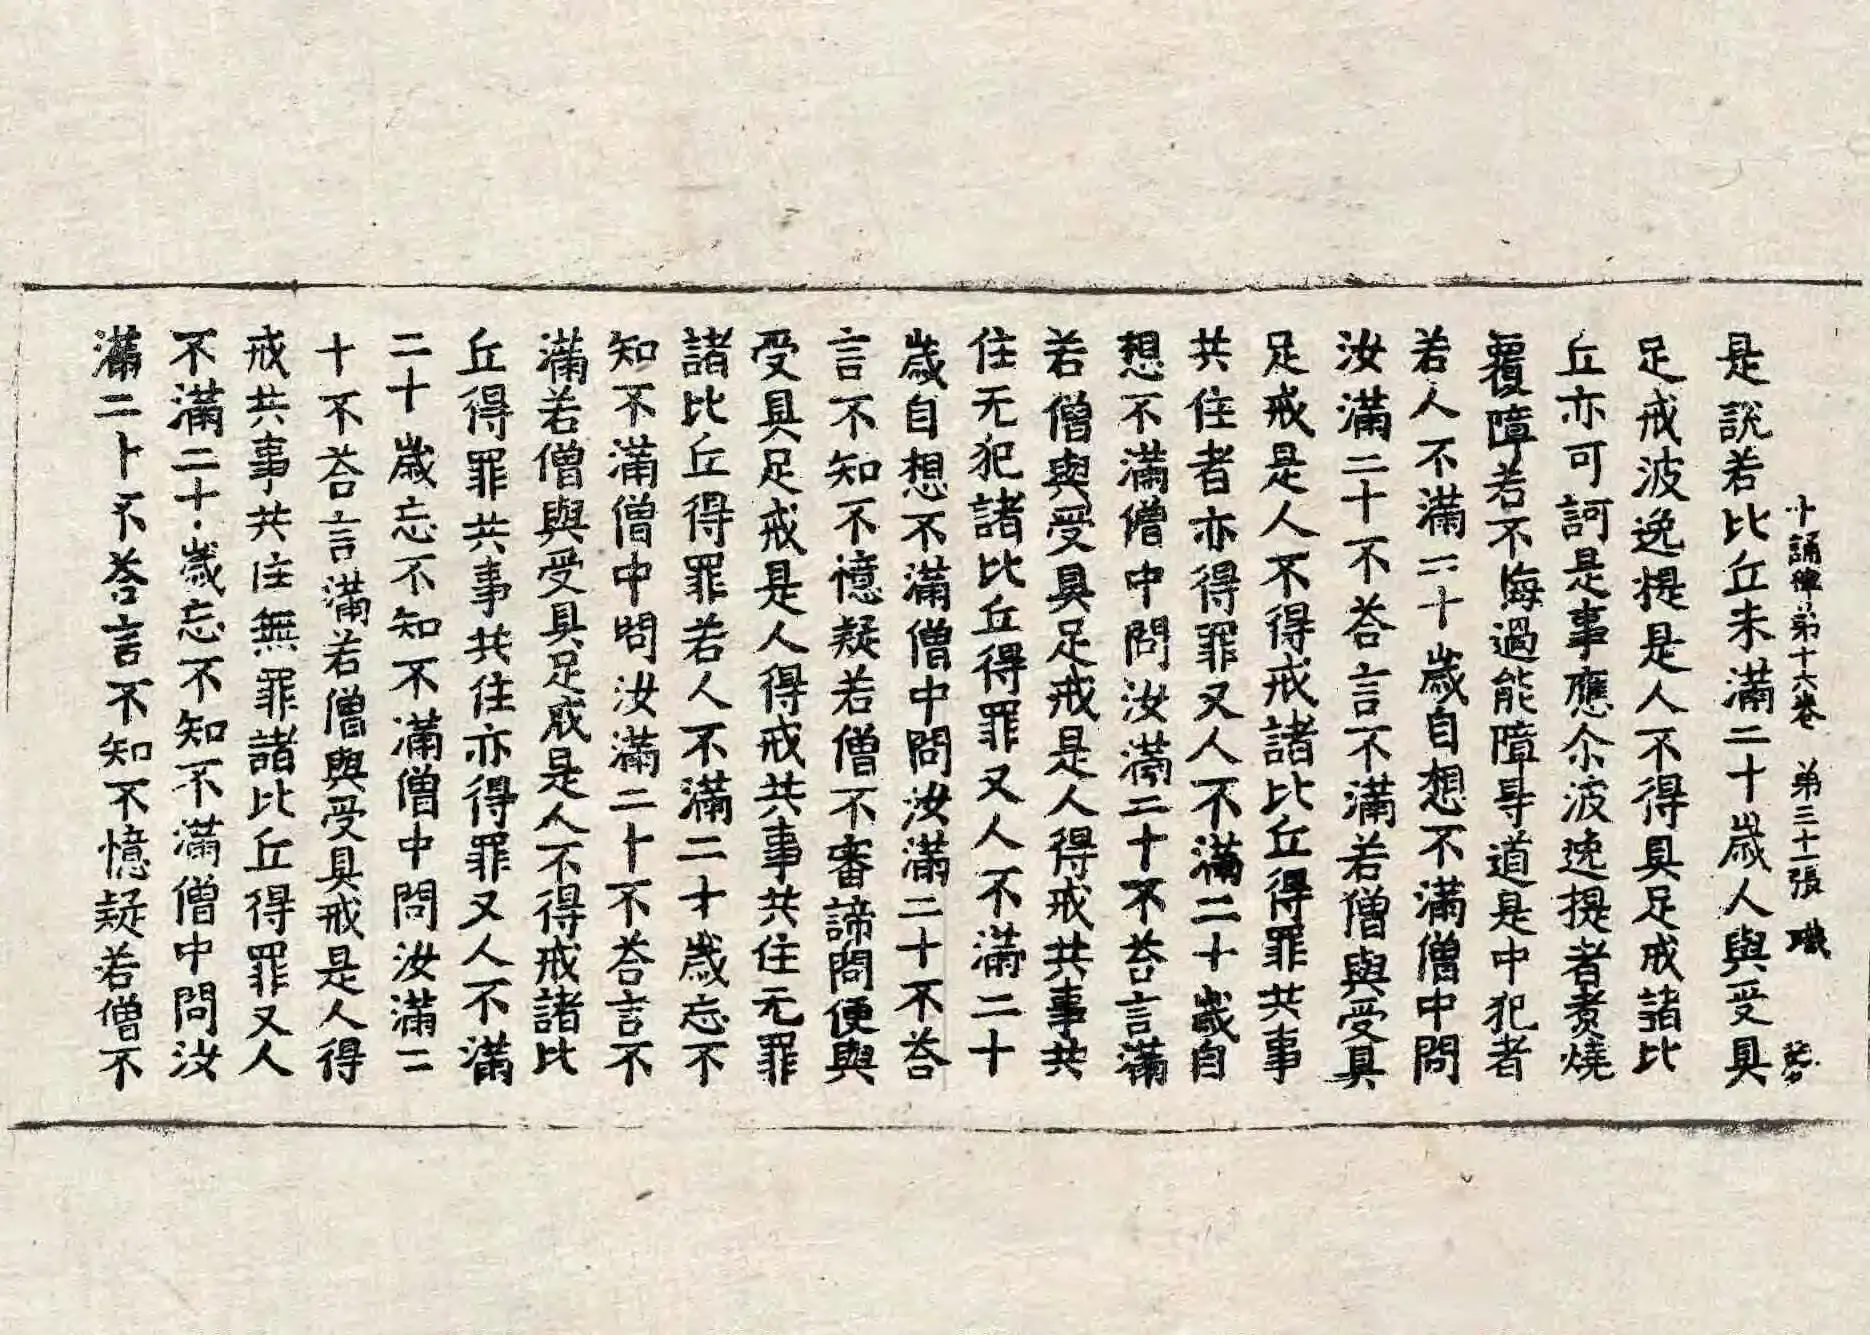 十誦律第十六卷 第三十一張 職
是說若比丘未滿二十歲人與受具
足戒波逸提是人不得具足戒諸比
丘亦可訶是事應尒波逸提者煑燒
覆障若不悔過能障㝵道是中犯者
若人不滿二十歲自想不滿僧中問
汝滿二十不荅言不滿若僧與受具
足戒是人不得戒諸比丘得罪共事
共住者亦得罪又人不滿二十歲自
想不滿僧中問汝滿二十不荅言滿
若僧與受具足戒是人得戒共事共
住无犯諸比丘得罪又人不滿二十
歲自想不滿僧中問汝滿二十不荅
言不知不憶疑若僧不審諦問便與
受具足戒是人得戒共事共住无罪
諸比丘得罪若人不滿二十歲忘不
知不滿僧中問汝滿二十不荅言不
滿若僧與受具足戒是人不得戒諸比
丘得罪共事共住亦得罪又人不滿
二十歲忘不知不滿僧中問汝滿二
十不荅言滿若僧與受具戒是人得
戒共事共住無罪諸比丘得罪又人
不滿二十歲忘不知不滿僧中問汝
滿二十不荅言不知不憶疑若僧不